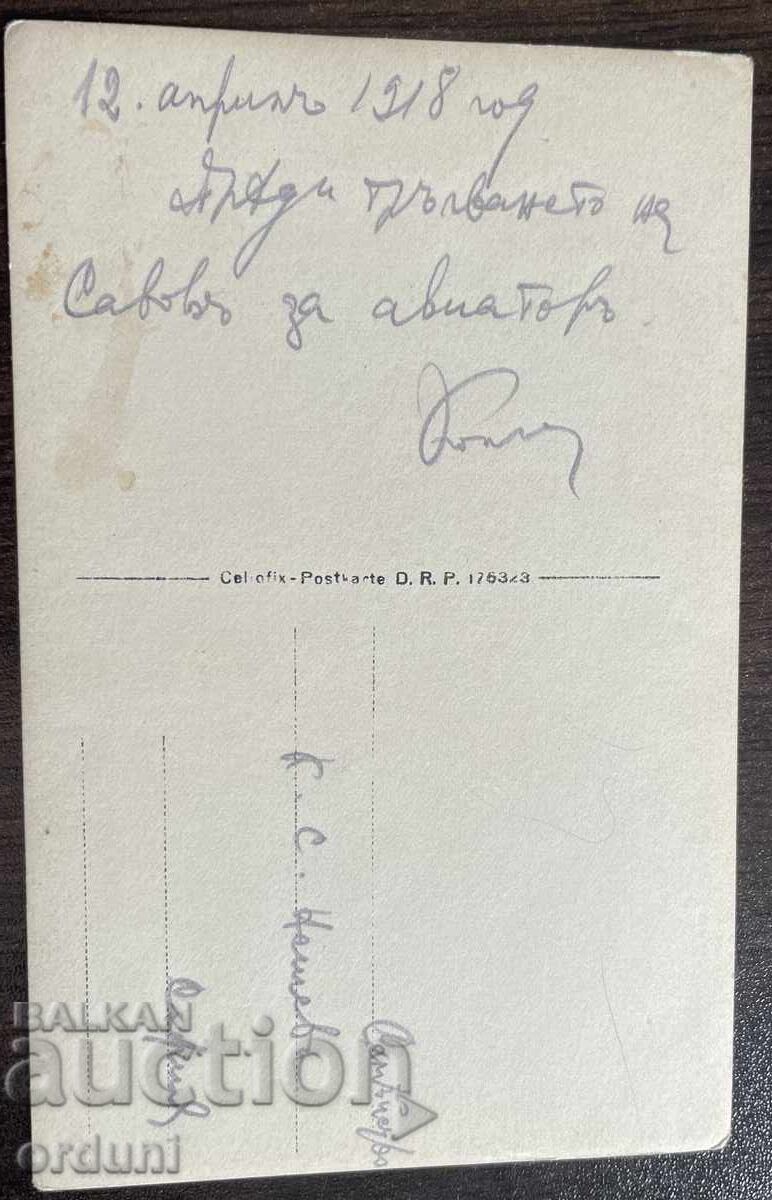 12. априлъ 1918 год
Преди тръгването на
Савовъ за авиаторъ.
Cellofix-Postkarte D. R. P. 175323
К. С. Начева
София
BALKAN
auction
orduni